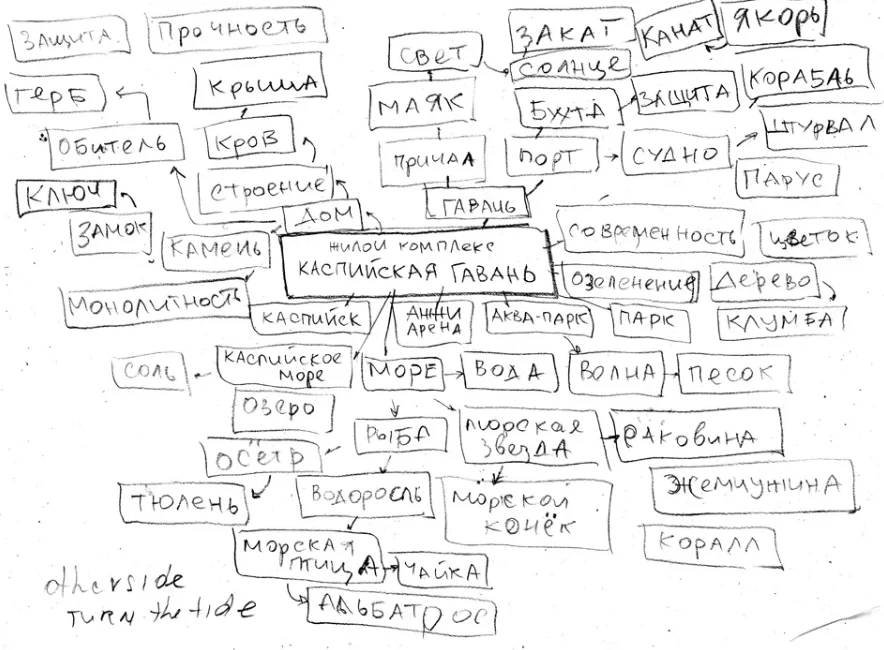 ЗАЩИТА
ПРОЧНОСТЬ
СВЕТ
ЗАКАТ
КАНАТ
ЯКОРЬ
СОЛНЦЕ
ГЕРБ
КРЫША
МАЯК
БУХТА
ЗАЩИТА
КОРАБЛЬ
ОБИТЕЛЬ
КРОВ
ПРИЧАЛ
ПОРТ
СУДНО
ШТУРВАЛ
КЛЮЧ
СТРОЕНИЕ
ПАРУС
ЗАМОК
ДОМ
ГАВАНЬ
КАМЕНЬ
ЖИЛОЙ КОМПЛЕКС
КАСПИЙСКАЯ ГАВАНЬ
СОВРЕМЕННОСТЬ
ЦВЕТОК
МОНОЛИТНОСТЬ
ОЗЕЛЕНЕНИЕ
ДЕРЕВО
КАСПИЙСК
АНЖИ
АРЕНА
АКВА-ПАРК
ПАРК
КЛУМБА
СОЛЬ
КАСПИЙСКОЕ
МОРЕ
МОРЕ
ВОДА
ВОЛНА
ПЕСОК
ОЗЕРО
РЫБА
МОРСКАЯ
ЗВЕЗДА
РАКОВИНА
ОСЁТР
ТЮЛЕНЬ
ВОДОРОСЛЬ
МОРСКОЙ
КОНЁК
ЖЕМЧУЖИНА
МОРСКАЯ
ПТИЦА
ЧАЙКА
КОРАЛЛ
АЛЬБАТРОС
otherside
TURN the tide